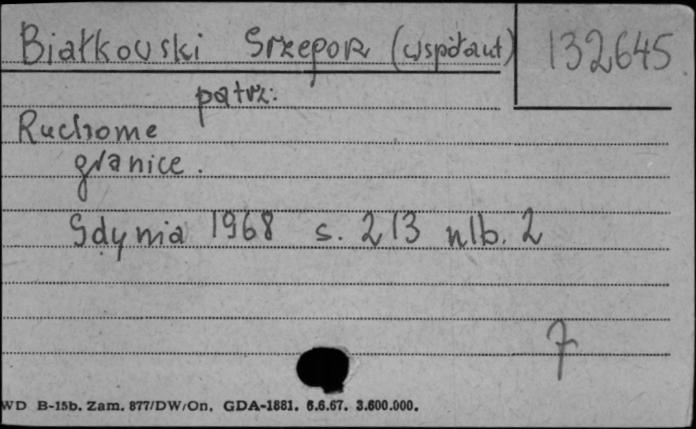 Białkowski Grzegorz (współaut)
132645
patrz:
Ruchome
granice.
Gdynia 1968 s. 213 nlb. 2
7
WD B-15b. Zam. 877/DW/On. GDA-1881. 6.6.67. 3.600.000.